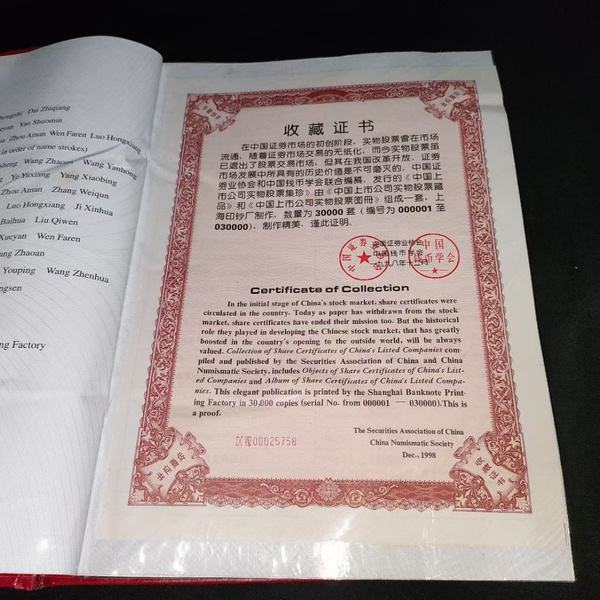 Dai Zhiqiang
Yao Shuomin
Zhou Aman Wen Faren Luo Hongxiang
in order of name strokes)
Wang Zhaoan Wang Yanhong
Ye Yixiang Yang Xiaobing
Zhou Aman Zhang Weiqun
Luo Hongxiang Ji Xinhua
Baihua Liu Qiwen
Xueyan Wen Faren
Zhaoan
Youping Wang Zhenhua
ng Factory
收藏证书
在中国证券市场的初创阶段，实物股票曾在市场
流通，随着证券市场交易的无纸化，而今实物股票虽
已退出了股票交易市场，但其在我国改革开放、证券
市场发展中所具有的历史价值是不可磨灭的，中国证
券业协会和中国钱币学会联合编纂、发行的《中国上
市公司实物股票集珍》由《中国上市公司实物股票藏
品》和《中国上市公司实物股票图册》组成一套，上
海印钞厂制作，数量为 30000 套（编号为 000001 至
030000），制作精美，谨此证明。
中国证券业协会
中国钱币学会
一九九八年十二月
Certificate of Collection
In the initial stage of China's stock market, share certificates were
circulated in the country. Today as paper has withdrawn from the stock
market, share certificates have ended their mission too. But the historical
role they played in developing the Chinese stock market, that has greatly
boosted in the country's opening to the outside world, will be always
valued. Collection of Share Certificates of China's Listed Companies com-
piled and published by the Securities Association of China and China
Numismatic Society, includes Objects of Share Certificates of China's List-
ed Companies and Album of Share Certificates of China's Listed Compa-
nies. This elegant publication is printed by the Shanghai Banknote Print-
ing Factory in 30,000 copies (serial No. from 000001 — 030000).This is
a proof.
The Securities Association of China
China Numismatic Society
Dec., 1998
00025758
收藏证书
收藏证书
收藏证书
收藏证书